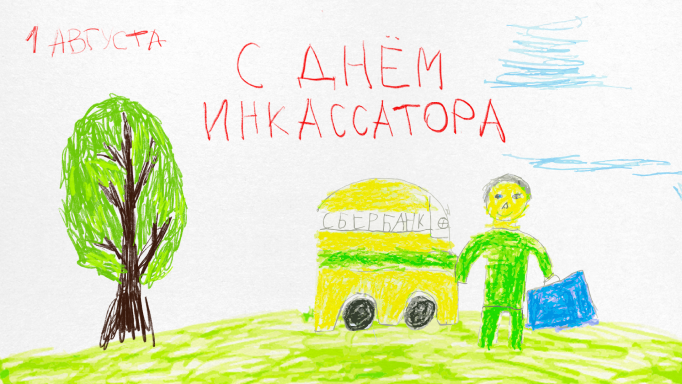 1 АВГУСТА
С ДНЁМ
ИНКАССАТОРА
СБЕРБАНК